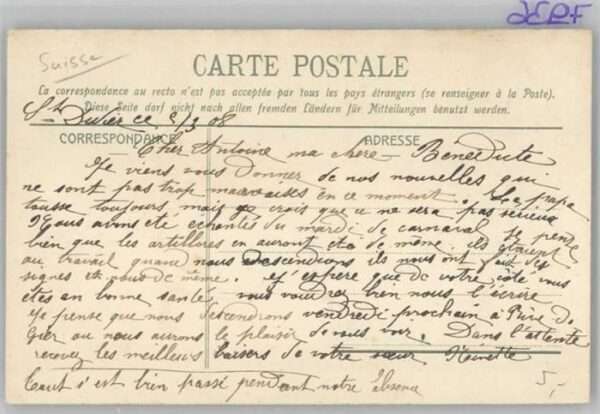 Suisse
CARTE POSTALE
La correspondance au recto n'est pas acceptée par tous les pays étrangers (se renseigner à la Poste).
Diese Seite darf nicht nach allen fremden Ländern für Mitteilungen benutzt werden.
St Didier ce 5/3 08
CORRESPONDANCE ADRESSE
Cher Antoine ma chere Bénédicte
Je viens vous donner de nos nouvelles qui
ne sont pas trop mauvaises en ce moment. papa
tousse toujours mais je crois que ce ne sera pas serieux
Nous avons été du mardi de carnaval je pense
bien que les artilleurs en auront eté de même ils étaient
au travail quand nous descendions ils nous ont fait des
signes et nous de même. j'espère que de votre côté vous
etes en bonne santé vous voudrez bien nous l'écrire
je pense que nous descendrons vendredi prochain à Rive de
Gier ou nous aurons le plaisir de vous voir. Dans l'attente
recevez les meilleurs baisers de votre sœur Ninette
Tout s'est bien passé pendant notre absence
5,-